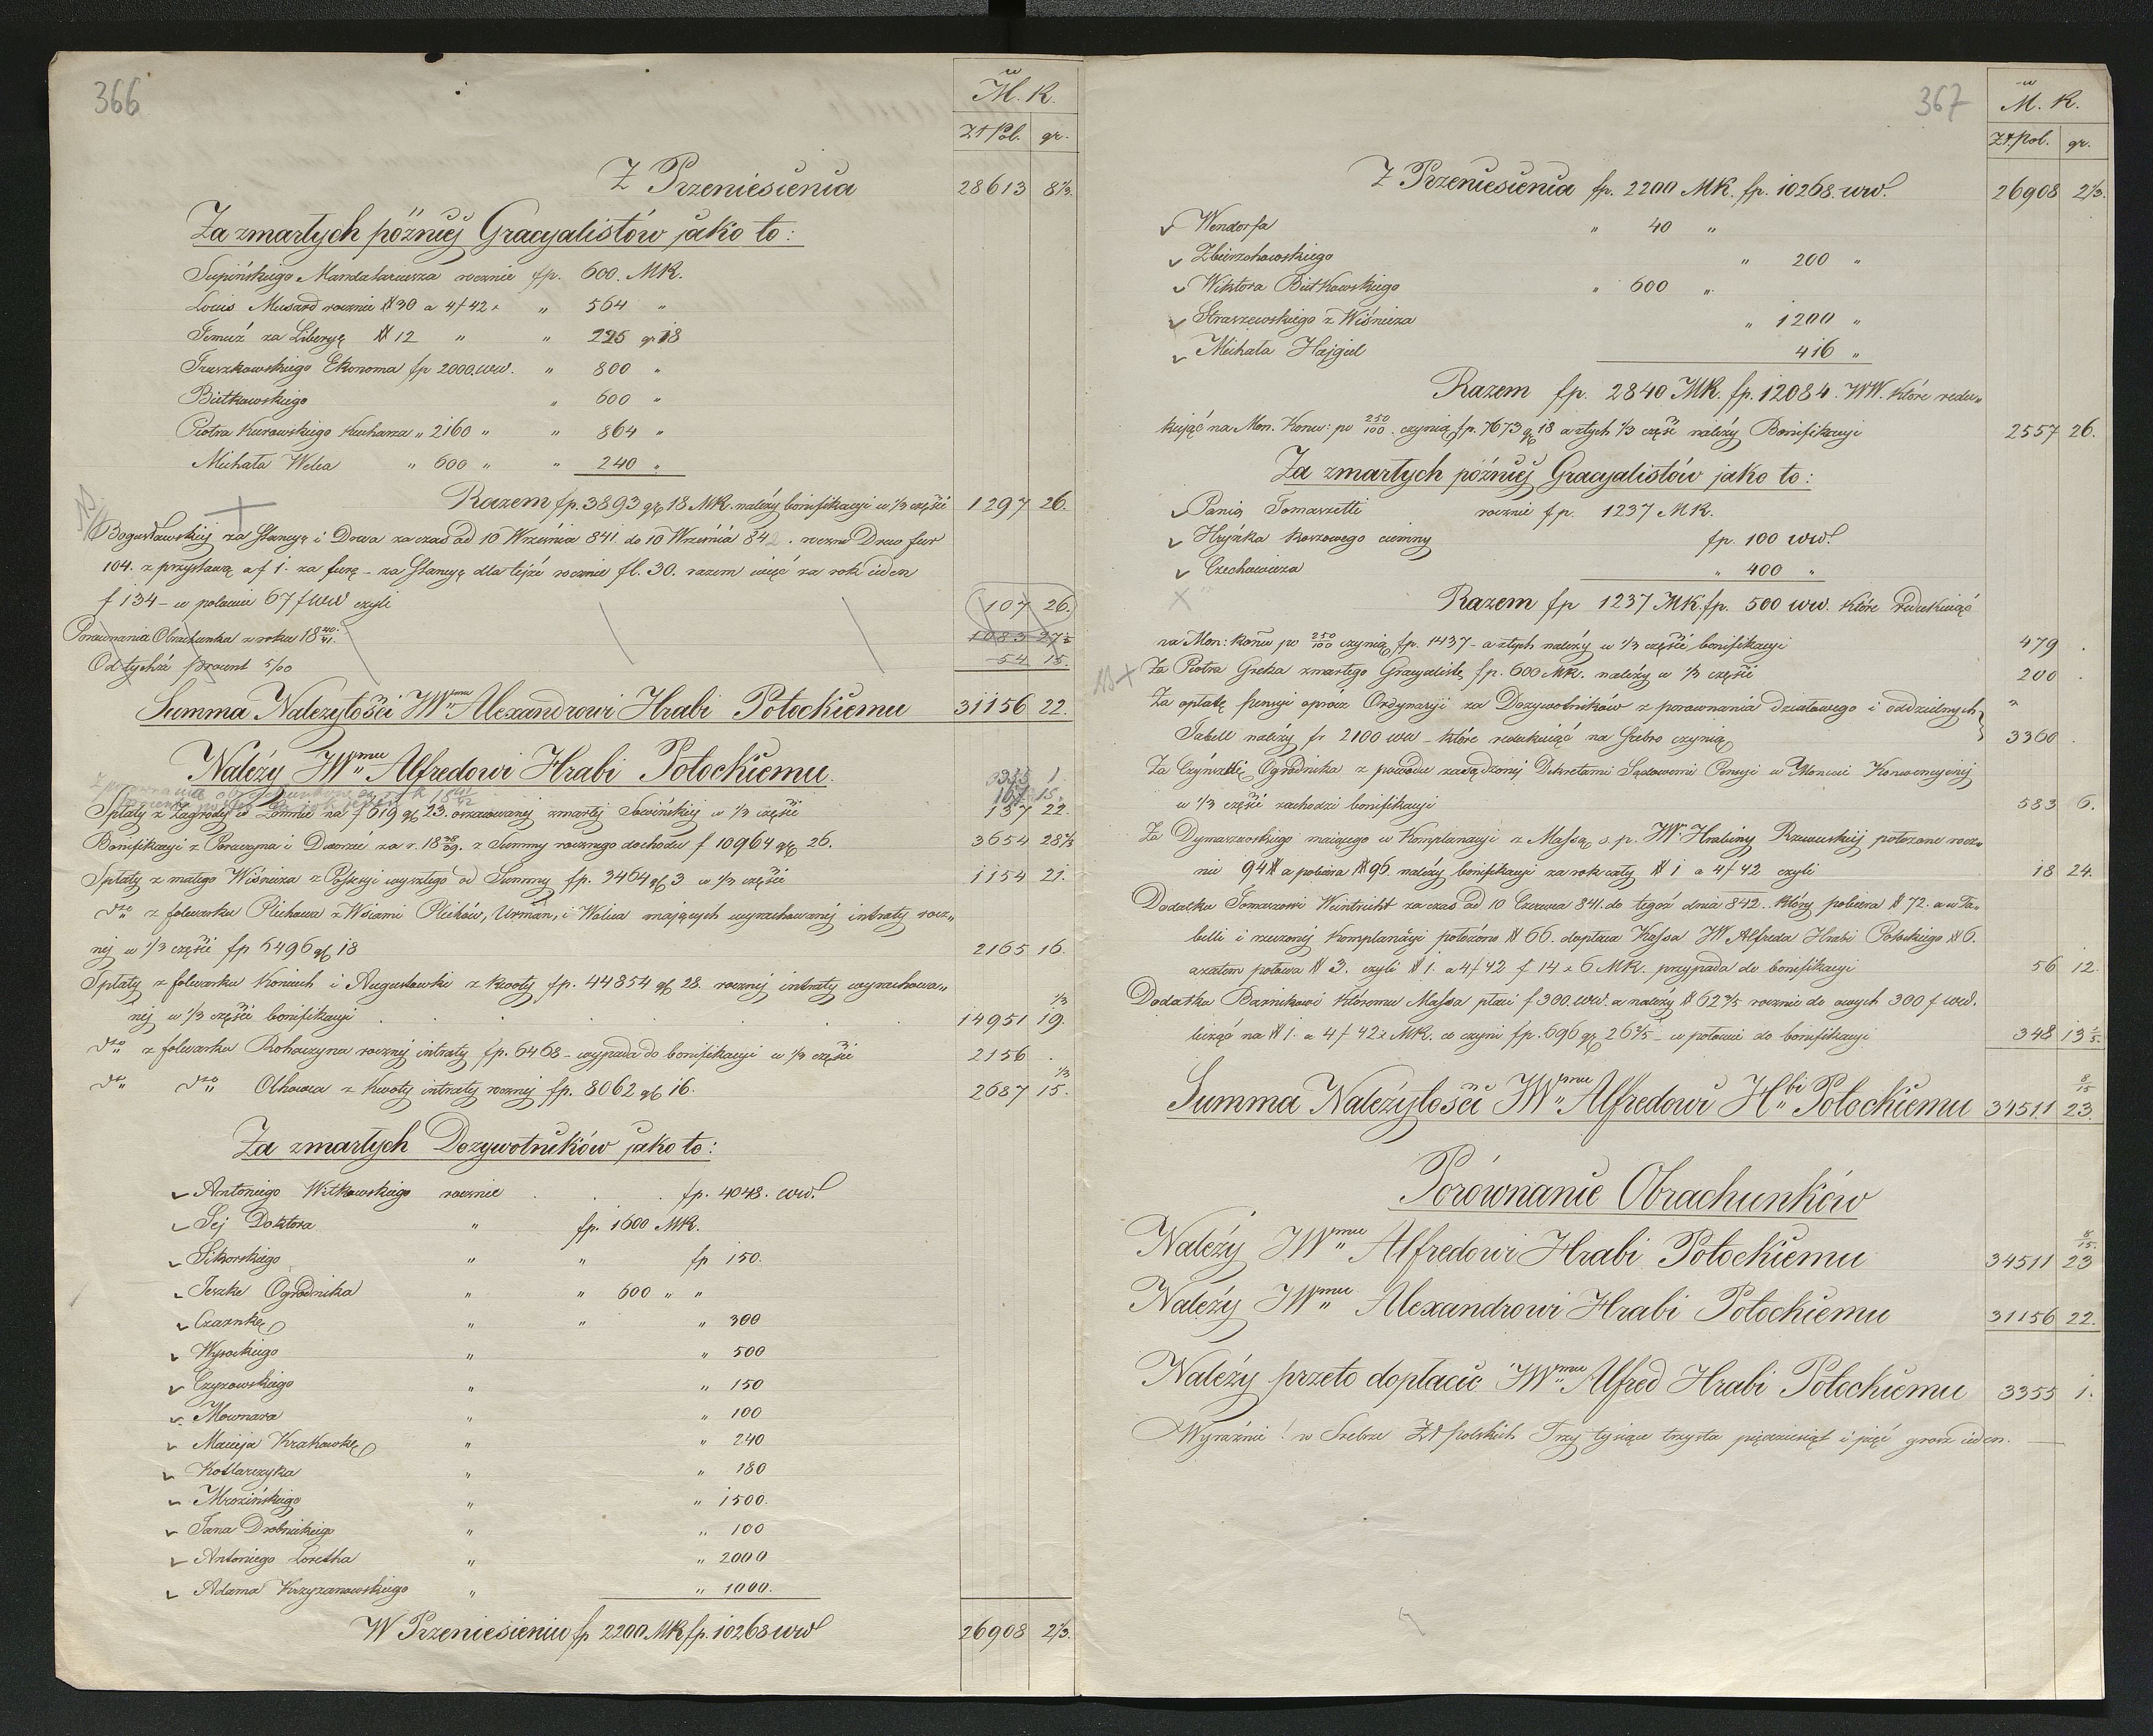 366
w
M. K.
Zł Pol. gr.
Z Przeniesienia 28613 8⅓.
Za zmarłych później Gracyalistów jako to:
Supińskiego Mandatariusza rocznie fp. 600. MK.
Louis Musard rocznie # 30 a 4f 42x " 564 "
Tomuź za Liberyę # 12 " " 225 gr 18
Truszkowskiego Ekonoma fp 2000. ww. " 800 "
Bietkowskiego " 600 "
Piotra Kurowskiego Kucharza " 2160 " " 864 "
Michała Welca " 600 " " 240 "
Razem fp. 3893 gr 18 MK. należy bonifikacyi w ⅓ części 1297 26.
Bogusławskiej za Stancyę i Drwa za czas od 10 Września 841. do 10 Września 842. roczne Drwo fur
104. z przystawą a f 1. za furę - za Stancyę dla tejże rocznie fl. 30. razem więc za rok ieden
f 134 - w połowie 67 f WW czyli 107 26.
Porównania Obrachunku z roku 18 40/41. 1083 27½
Od tychże procent 5/00 54 15.
Summa Należytości JWmu Alexandrowi Hrabi Potockiemu 31156 22.
Należy JWmu Alfredowi Hrabi Potockiemu.
3355 1.
z porównania obrachunków za rok 18 41/42
167 15.
Spłaty z Zagrody w Łomnie na f 619 gr 23. oszacowanej zmarłej Sowińskiej w ⅓ części 137 22.
Bonifikacyi z Poruczyna i Dworzec za r. 18 38/39. z Summy rocznego dochodu f 10964 gr 26. 3654 28⅔
Spłaty z małego Wiśnicza z Possesyi wyszłego od Summy fp. 3464 gr 3 w ⅓ części 1154 21.
dto z folwarku Plichowa z Wsiami Plichów, Urmań, i Wolica mających wyrachowanej intraty rocz„
nej w ⅓ części fp 6496 gr 18 2165 16.
Spłaty z folwarku Koniuch i Augustówki z kwoty fp. 44854 gr 28. rocznej intraty wyrachowa„
nej w ⅓ części bonifikacyi 14951 19⅓.
dto z folwarku Rohaczyna rocznej intraty fp. 6468 - wypada do bonifikacyi w ⅓ części 2156 .
dto dto Olhowca z kwoty intraty rocznej fp. 8062 gr 16. 2687 15⅓.
Za zmarłych Dożywotników jako to:
Antoniego Witkowskiego rocznie . . . fp. 4048. ww.
Tej Doktora " fp. 1600 MK.
Sikorskiego " " fp 150.
Jeszke Ogrodnika " " 600 " "
Czarnkę " " " 300
Wysockiego " " 500
Czyzowskiego " " 150
Mownara " " 100
Macieja Krakowskę " " 240
Kotlarczyka " 180
Mrozińskiego " " 1500.
Jana Drobnickiego " " 100
Antoniego Loretha " " 2000
Adama Krzyżanowskiego " " 1000.
W Przeniesieniu fp 2200 MK fp. 10268 ww 26908 2⅓.
367
w
M. K.
Zł. Pol. gr.
Z Przeniesienia fp. 2200 MK. fp. 10268. ww. 26908 2⅓.
Wendorfa " 40 "
Zbierzchowskiego " 200 "
Wiktora Bietkowskiego " 600 "
Straszewskiego z Wiśnicza " 1200 "
Michała Hajgiel 416 "
Razem fp. 2840 MK. fp. 12084. WW. które redu„
kując na Mon. Konw: po 250/100. czynią fp. 7673 gr 18 a z tych ⅓ część należy Bonifikacyi 2557 26.
Za zmarłych później Gracyalistów jako to:
Panią Tomaszetti rocznie fp. 1237 MK.
Hryńka Kozowego ciemny fp. 100 ww.
Czechowicza " 400 "
Razem fp 1237 MK. fp. 500 ww. które redukując
na Mon: konw po 250/100 czynią fp. 1437 - a z tych należy w ⅓ części bonifikacyi 479 .
Za Piotra Gretza zmarłego Gracyalistę fp. 600 MK. należy w ⅓ części 200 .
Za opłatę pensyi oprócz Ordynaryi za Dożywotników z porównania działowego i oddzielnych "
Tabell należy fr 2100 ww - które redukując na Srebro czynią 3360 .
Za Ogrodnika z powodu zasądzonej Dekretami Sądowemi Pensyi w Monecie Konwencyinej
w ⅓ części zachodzi bonifikacyi 583 6.
Za Dymaszowskiego maiącego w Komplanacyi z Massą s. p. JW: Hrabiny Rzewuskiej położone rocz„
nie 94 # a pobiera # 96. należy bonifikacyi za rok cały # 1 a 4f 42 czyli 18 24.
Dodatku Tomaszowi Weintricht za czas od 10 Czerwca 841. do tegoż dnia 842. który pobiera # 72. a w Ta„
belli i rzeczonej Komplanacyi położono # 66. dopłaca Kassa JW Alfreda Hrabi Potockiego # 6.
azatem połowa # 3. czyli # 1. a 4f 42 f 14 x 6 MK. przypada do bonifikacyi 56 12.
Dodatku Bazinkowi któremu Massa płaci f 300. ww. a należy # 62⅗ rocznie do owych 300 f ww.
licząc na # 1. a 4f 42x MK. co czyni fp. 696 gr 26⅖ - w połowie do bonifikacyi 348 13⅕.
Summa Należytości JWmu Alfredowi Hbi Potockiemu 34511 23 8/15.
Porównanie Obrachunków
Należy JWmu Alfredowi Hrabi Potockiemu 34511 23 8/15.
Należy JWmu Alexandrowi Hrabi Potockiemu 31156 22.
Należy przeto dopłacić JWmu Alfred Hrabi Potockiemu 3355 1.
Wyraźnie! w Srebrze Zł polskich Trzy tysiące trzysta pięćdziesiąt i pięć grosz ieden.